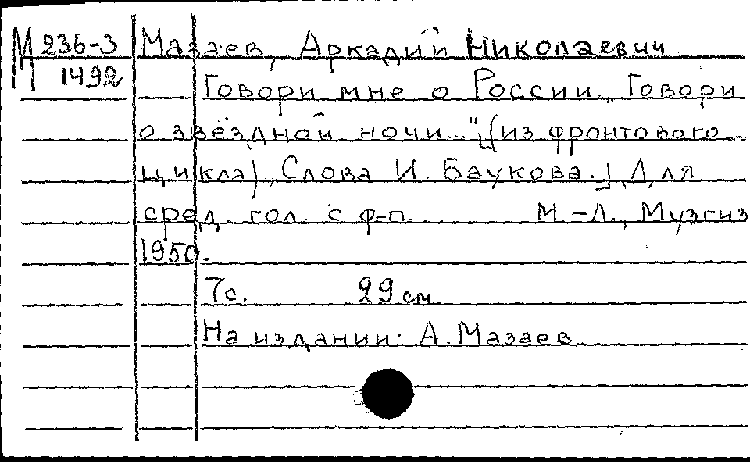 М 236-3 Мазаев, Аркадий Николаевич
1492 Говори мне о России, Говори
о звёздной ночи..." (из фронтового
цикла), Слова И. Баукова.], Для
сред. гол. с ф-п. М.-Л., Музгиз
1950.
7с. 29 см
На издании: А. Мазаев